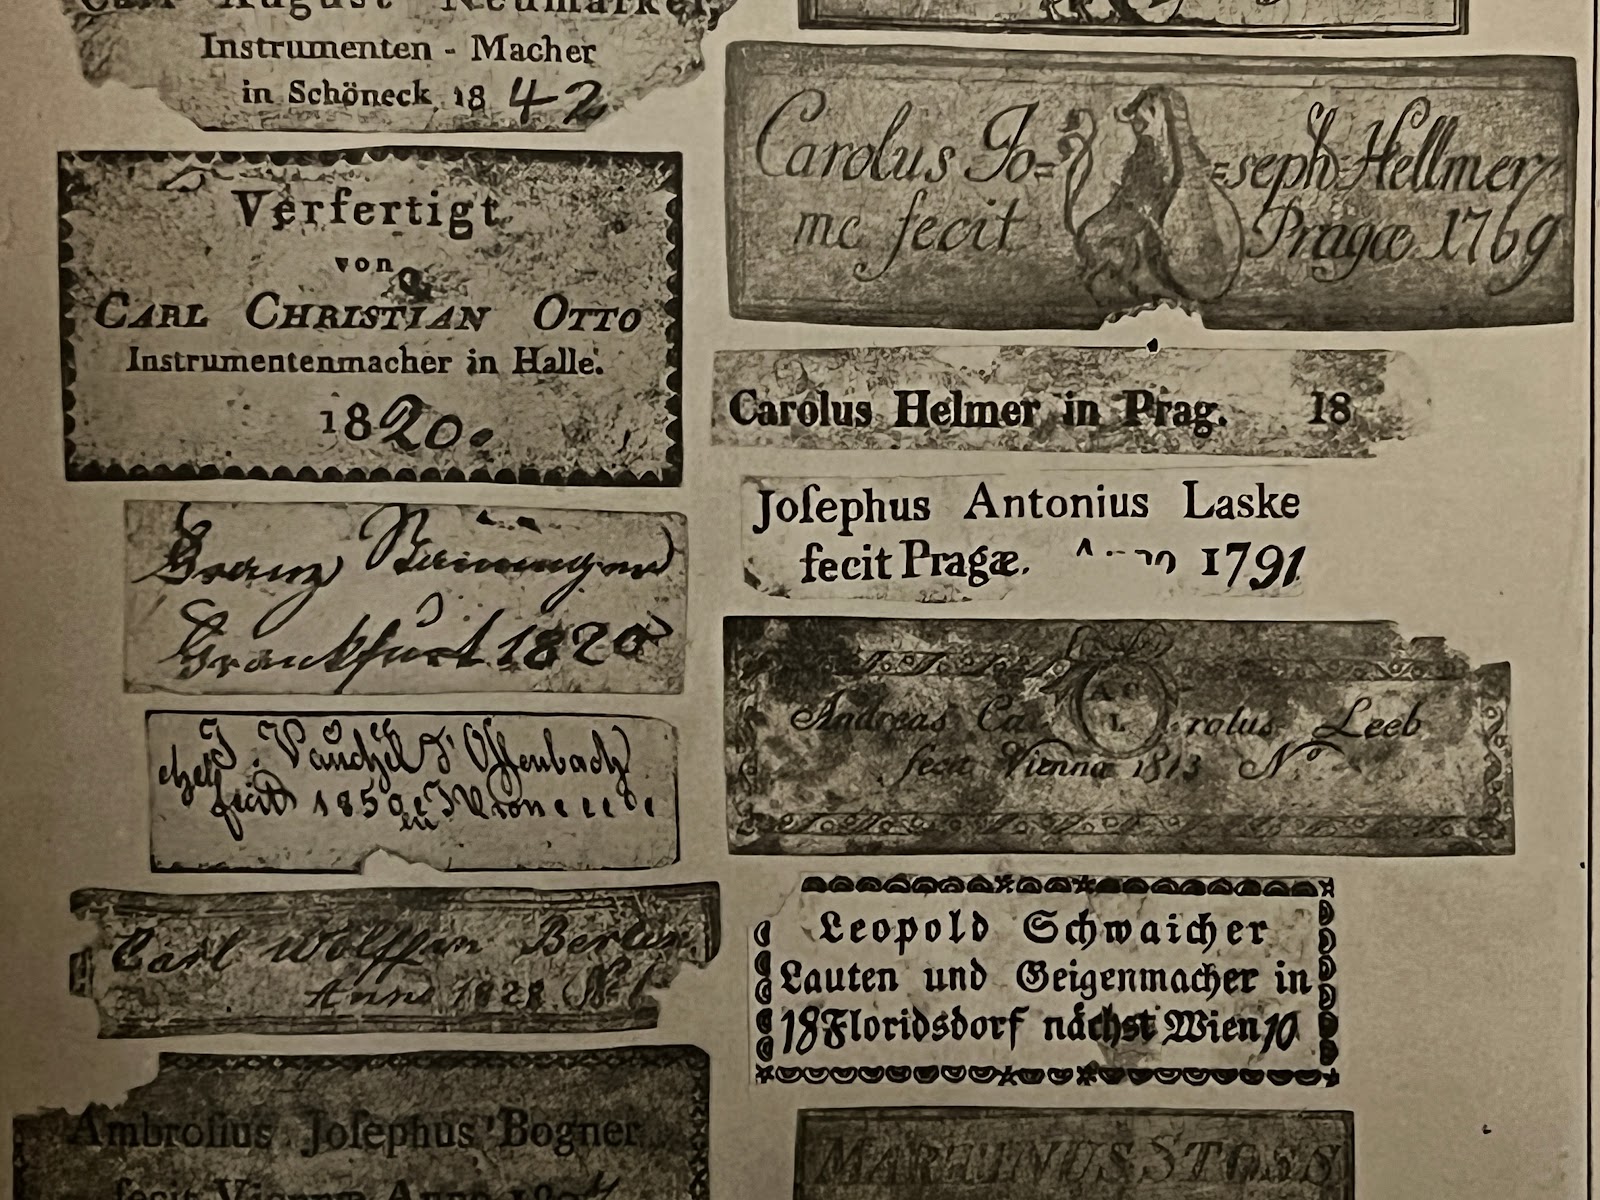 Carl August Neumärker,
Instrumenten - Macher
in Schöneck 1842
Verfertigt
von
CARL CHRISTIAN OTTO
Instrumentenmacher in Halle.
1820.
Franz
Frankfurt 1820
J. Vauchel d' Offenbach
fecit 185
Carl Wolffen Berlin
Anno 182
Ambroſius Joſephus Bogner
fecit Viennæ Anno 180
Carolus Jo= =seph Hellmer
me fecit Pragæ 1769
Carolus Helmer in Prag. 18
Joſephus Antonius Laske
fecit Pragæ. 1791
Andreas Ca rolus Leeb
fecit Vienna 1813 No
Leopold Schwaicher
Lauten und Geigenmacher in
18 Floridsdorf nächst Wien 10
MARTINUS STOSS